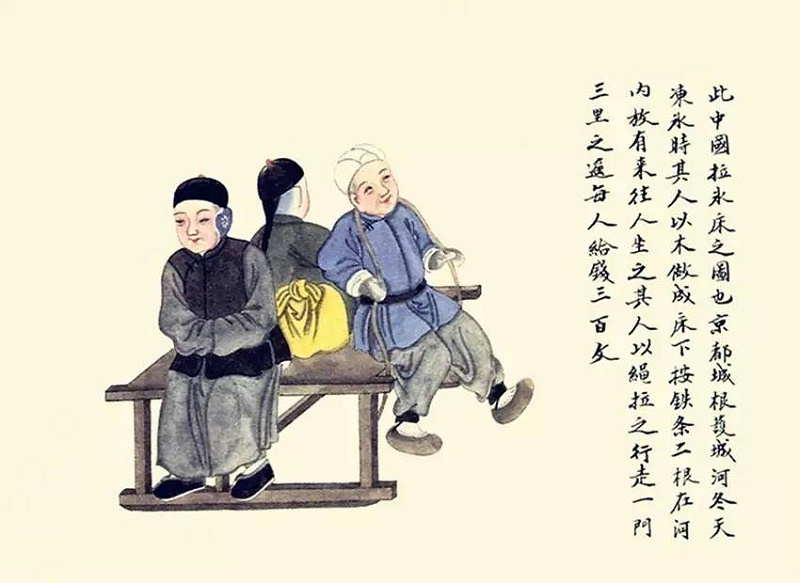 此中國拉氷床之圖也京都城根䕶城河冬天
凍氷時其人以木做成床下按鉄条二根在河
内放有来往人坐之其人以繩拉之行走一門
三里之遥每人給錢三百文